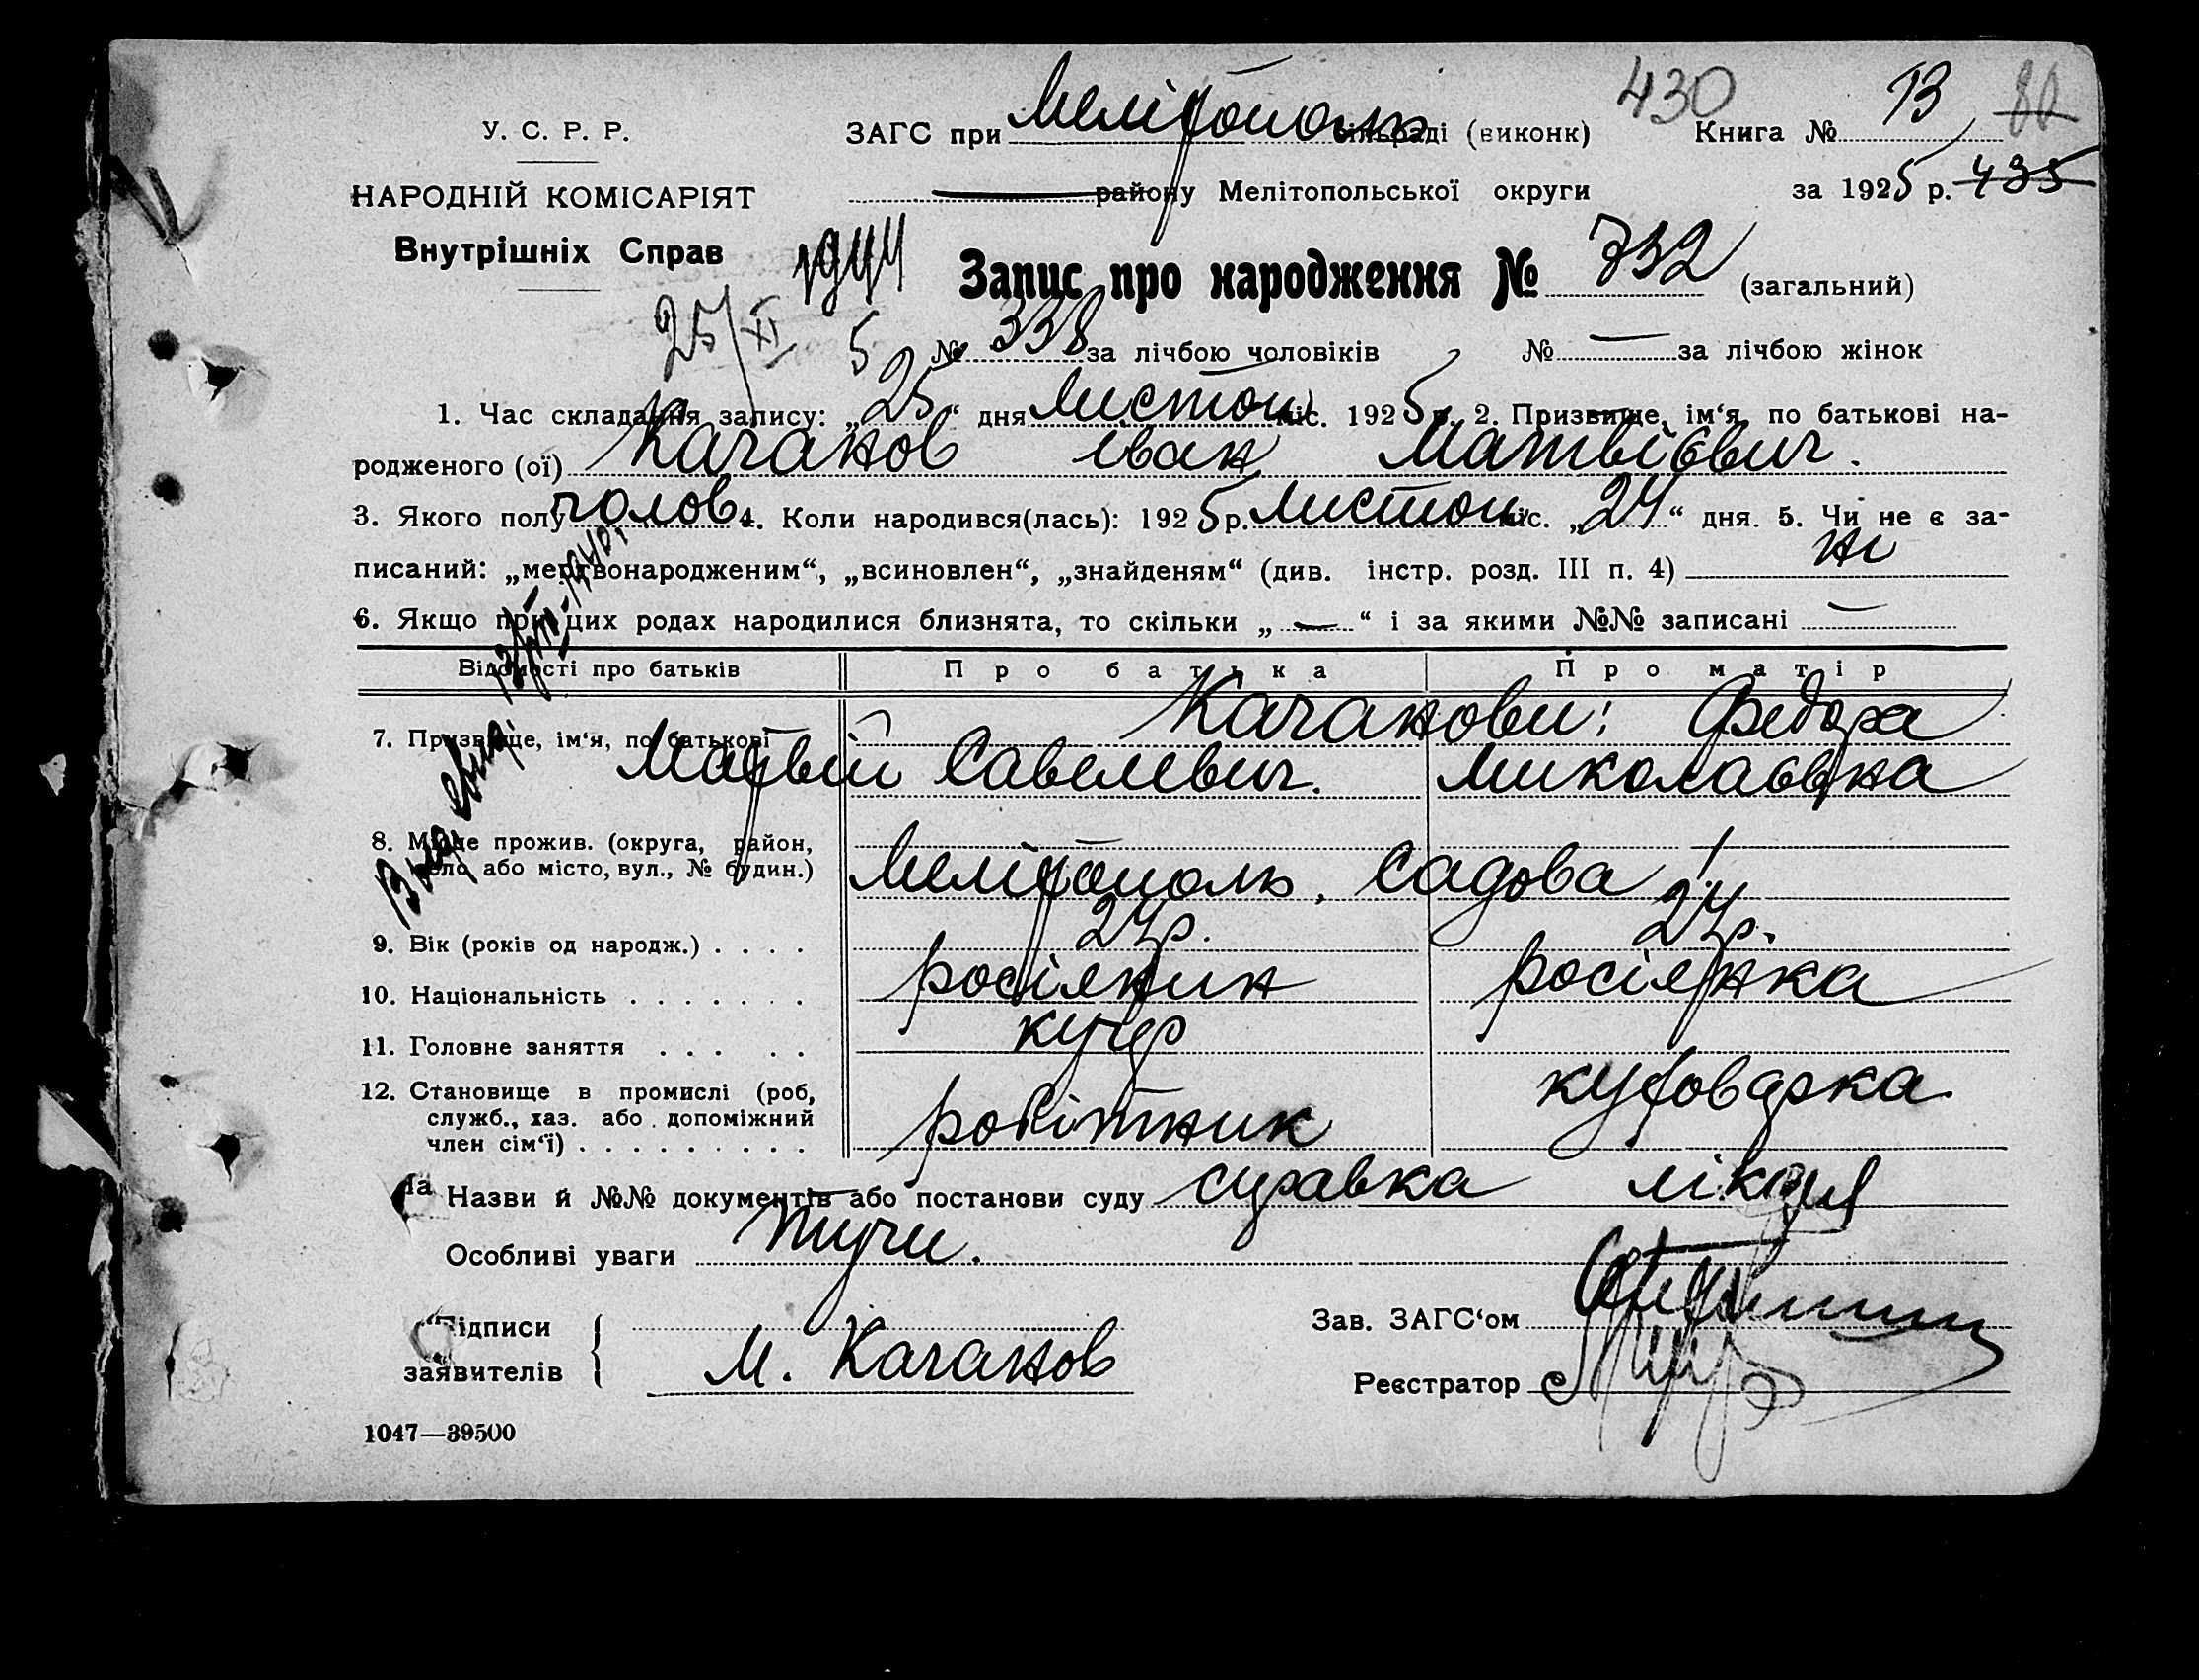 430
У. С. Р. Р. ЗАГС при Мелітополь сільраді (виконк) Книга № 13 80
НАРОДНІЙ КОМІСАРІЯТ району Мелітопольської округи за 1925 р. 435
Внутрішніх Справ 1944 Запис про народження № 732 (загальний)
25/XI 5 № 338 за лічбою чоловіків № — за лічбою жінок
1. Час складання запису: „25“ дня листоп міс. 1925 р. 2. Призвище, ім‘я, по батькові на-
родженого (ої) Качанов Іван Матвієвич.
3. Якого полу чолов. 4. Коли народився(лась): 1925 р. листоп міс. „24“ дня. 5. Чи не є за-
писаний: „мертвонародженим“, „всиновлен“, „знайденям“ (див. інстр. розд. III п. 4) ні
6. Якщо при цих родах народилися близнята, то скільки „—“ і за якими №№ записані —
Відомості про батьків Про батька Про матір
7. Призвище, ім‘я, по батькові Качанови: Федора
Матвій Савелевич. Миколаєвна
8. Місце прожив. (округа, район,
село або місто, вул., № будин.) Мелітополь, Садова 1
9. Вік (років од народж.) . . . . 24 р. 24 р.
10. Національність . . . . . . . росіянин росіянка
11. Головне заняття . . . . . кучер
12. Становище в промислі (роб, куховарка
служб., хаз. або допоміжний робітник
член сім‘ї) . . . . . . . . .
Назви й №№ документів або постанови суду справка лікаря
Особливі уваги
Підписи Зав. ЗАГС‘ом
заявителів М. Качанов Реєстратор
1047—39500